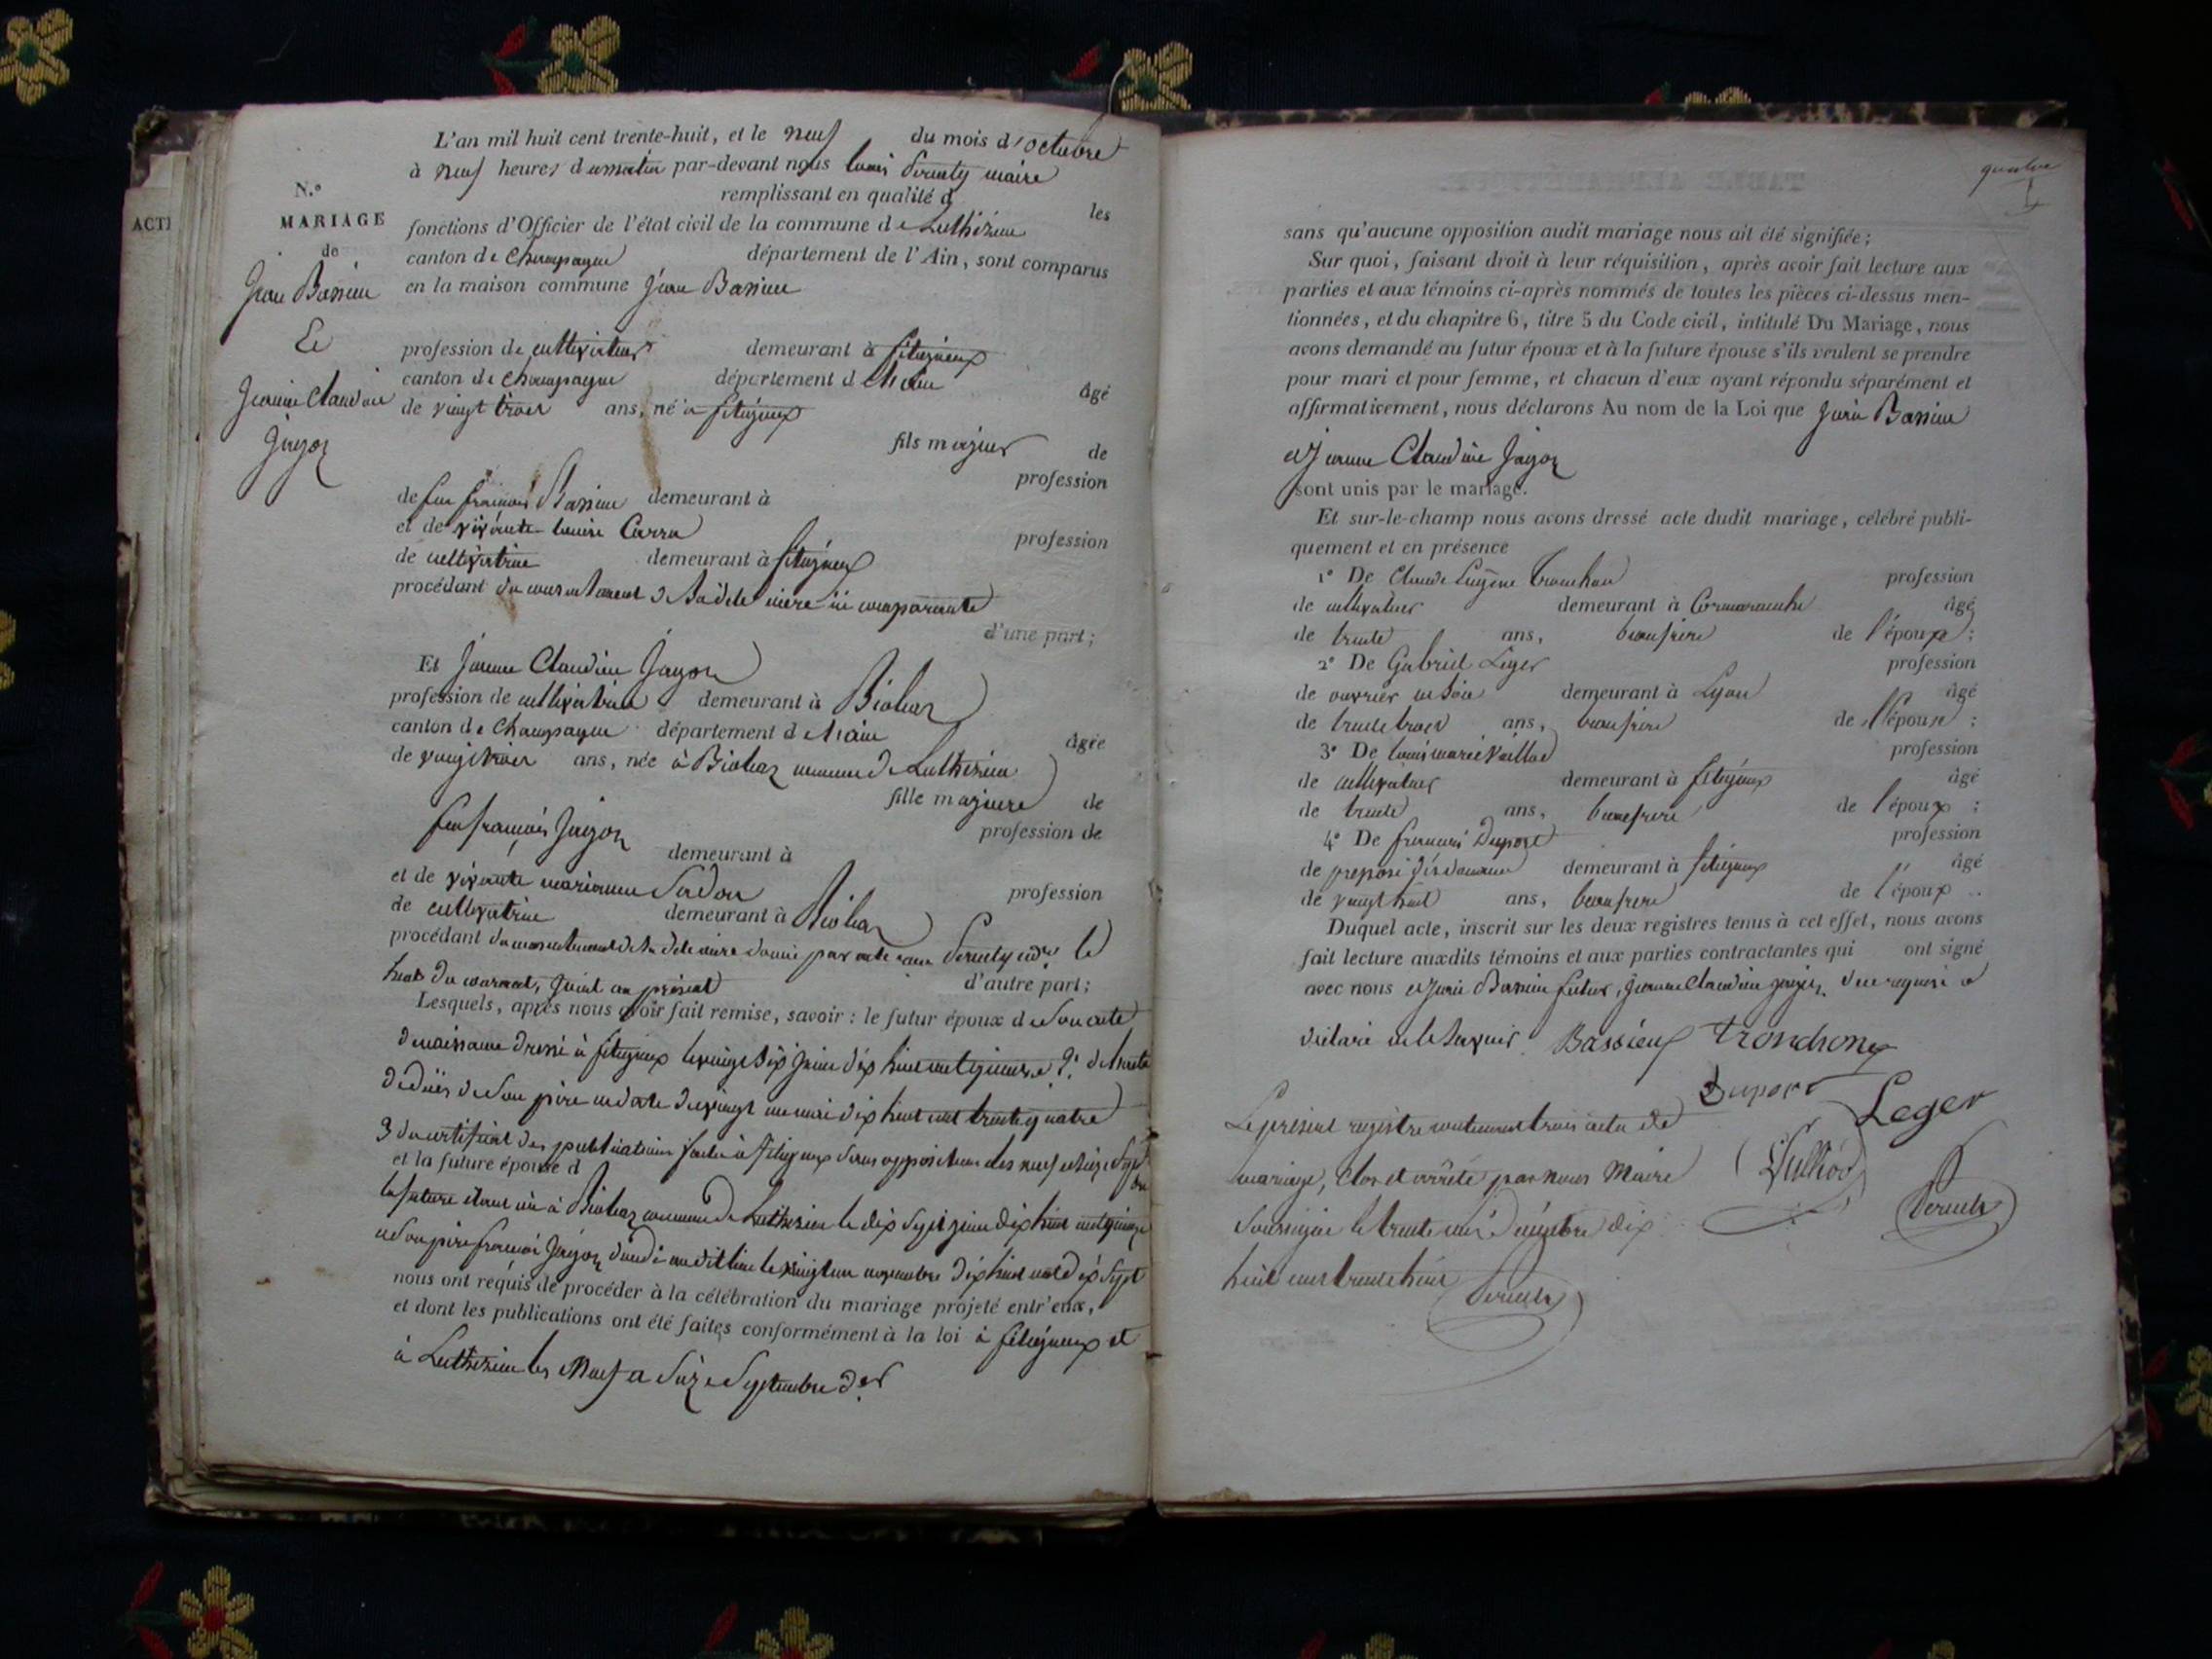 ACTI
N.º
MARIAGE
de
Jean Bassieu
Et
Jeanne Claudine
Jayoz
L'an mil huit cent trente-huit, et le neuf du mois d'octobre
à neuf heures du matin par-devant nous Louis maire
remplissant en qualité d les
fonctions d'Officier de l'état civil de la commune de Luthézieu
canton de Champagne département de l'Ain, sont comparus
en la maison commune Jean Bassieu
profession de cultivateur demeurant à fitignieux
canton de Champagne département de l'ain âgé
de vingt trois ans, né à fitignieux
fils majeur de
profession
de feu françois Bassieu demeurant à
et de vivante Louise Carra
profession
de cultivatrice demeurant à fitignieux
procédant du consentement de sa dite mère ici comparante
d'une part;
Et Jeanne Claudine Jayoz
profession de cultivatrice demeurant à Bioleaz
canton de Champagne département de l'ain âgée
de vingt trois ans, née à Bioleaz commune de Luthézieu
fille majeure de
feu françois Jayoz profession de
demeurant à
et de vivante marianne profession
de cultivatrice demeurant à Bioleaz
procédant du consentement de sa dite mère donné par acte le
huit du courant, joint au présent d'autre part;
Lesquels, après nous avoir fait remise, savoir: le futur époux de son acte
de naissance dressé à fitignieux le vingt six juin dix huit cent quinze, 2.º de l'acte
de décès de son père en date du vingt un mai dix huit cent trente quatre
3 du certificat des publications faites à fitignieux sans opposition les neuf et seize
et la future épouse d
la future étant née à Bioleaz commune de Luthézieu le dix sept juin dix huit cent quinze
son père françois Jayoz décédé au dit lieu le vingt un novembre dix huit cent dix sept
nous ont requis de procéder à la célébration du mariage projeté entr'eux,
et dont les publications ont été faites conformément à la loi à fitignieux et
à Luthézieu les neuf et seize septembre d.er
quatre
sans qu'aucune opposition audit mariage nous ait été signifiée;
Sur quoi, faisant droit à leur réquisition, après avoir fait lecture aux
parties et aux témoins ci-après nommés de toutes les pièces ci-dessus men-
tionnées, et du chapitre 6, titre 5 du Code civil, intitulé Du Mariage, nous
avons demandé au futur époux et à la future épouse s'ils veulent se prendre
pour mari et pour femme, et chacun d'eux ayant répondu séparément et
affirmativement, nous déclarons Au nom de la Loi que Jean Bassieu
et Jeanne Claudine Jayoz
sont unis par le mariage.
Et sur-le-champ nous avons dressé acte dudit mariage, célébré publi-
quement et en présence
1º De Claude Eugène Tronchon profession
de cultivateur demeurant à Cormaranche âgé
de trente ans, beaufrère de l'époux;
2º De Gabriel Léger profession
de ouvrier en soie demeurant à Lyon âgé
de trente trois ans, beaufrère de l'épouse;
3º De Louis marie profession
de cultivateur demeurant à fitignieux âgé
de trente ans, beaufrère de l'époux;
4º De françois Duport profession
de préposé des douanes demeurant à fitignieux âgé
de vingt huit ans, beaufrère de l'époux..
Duquel acte, inscrit sur les deux registres tenus à cet effet, nous avons
fait lecture auxdits témoins et aux parties contractantes qui ont signé
avec nous et Jean Bassieu futur, Jeanne Claudine Jayoz de ce requise a
déclaré ne le savoir. Bassieu Tronchon
Duport Leger
Le présent registre contenant trois actes de
mariage, Clos et arrêté par nous Maire
soussigné le trente un décembre dix
huit cent trente huit